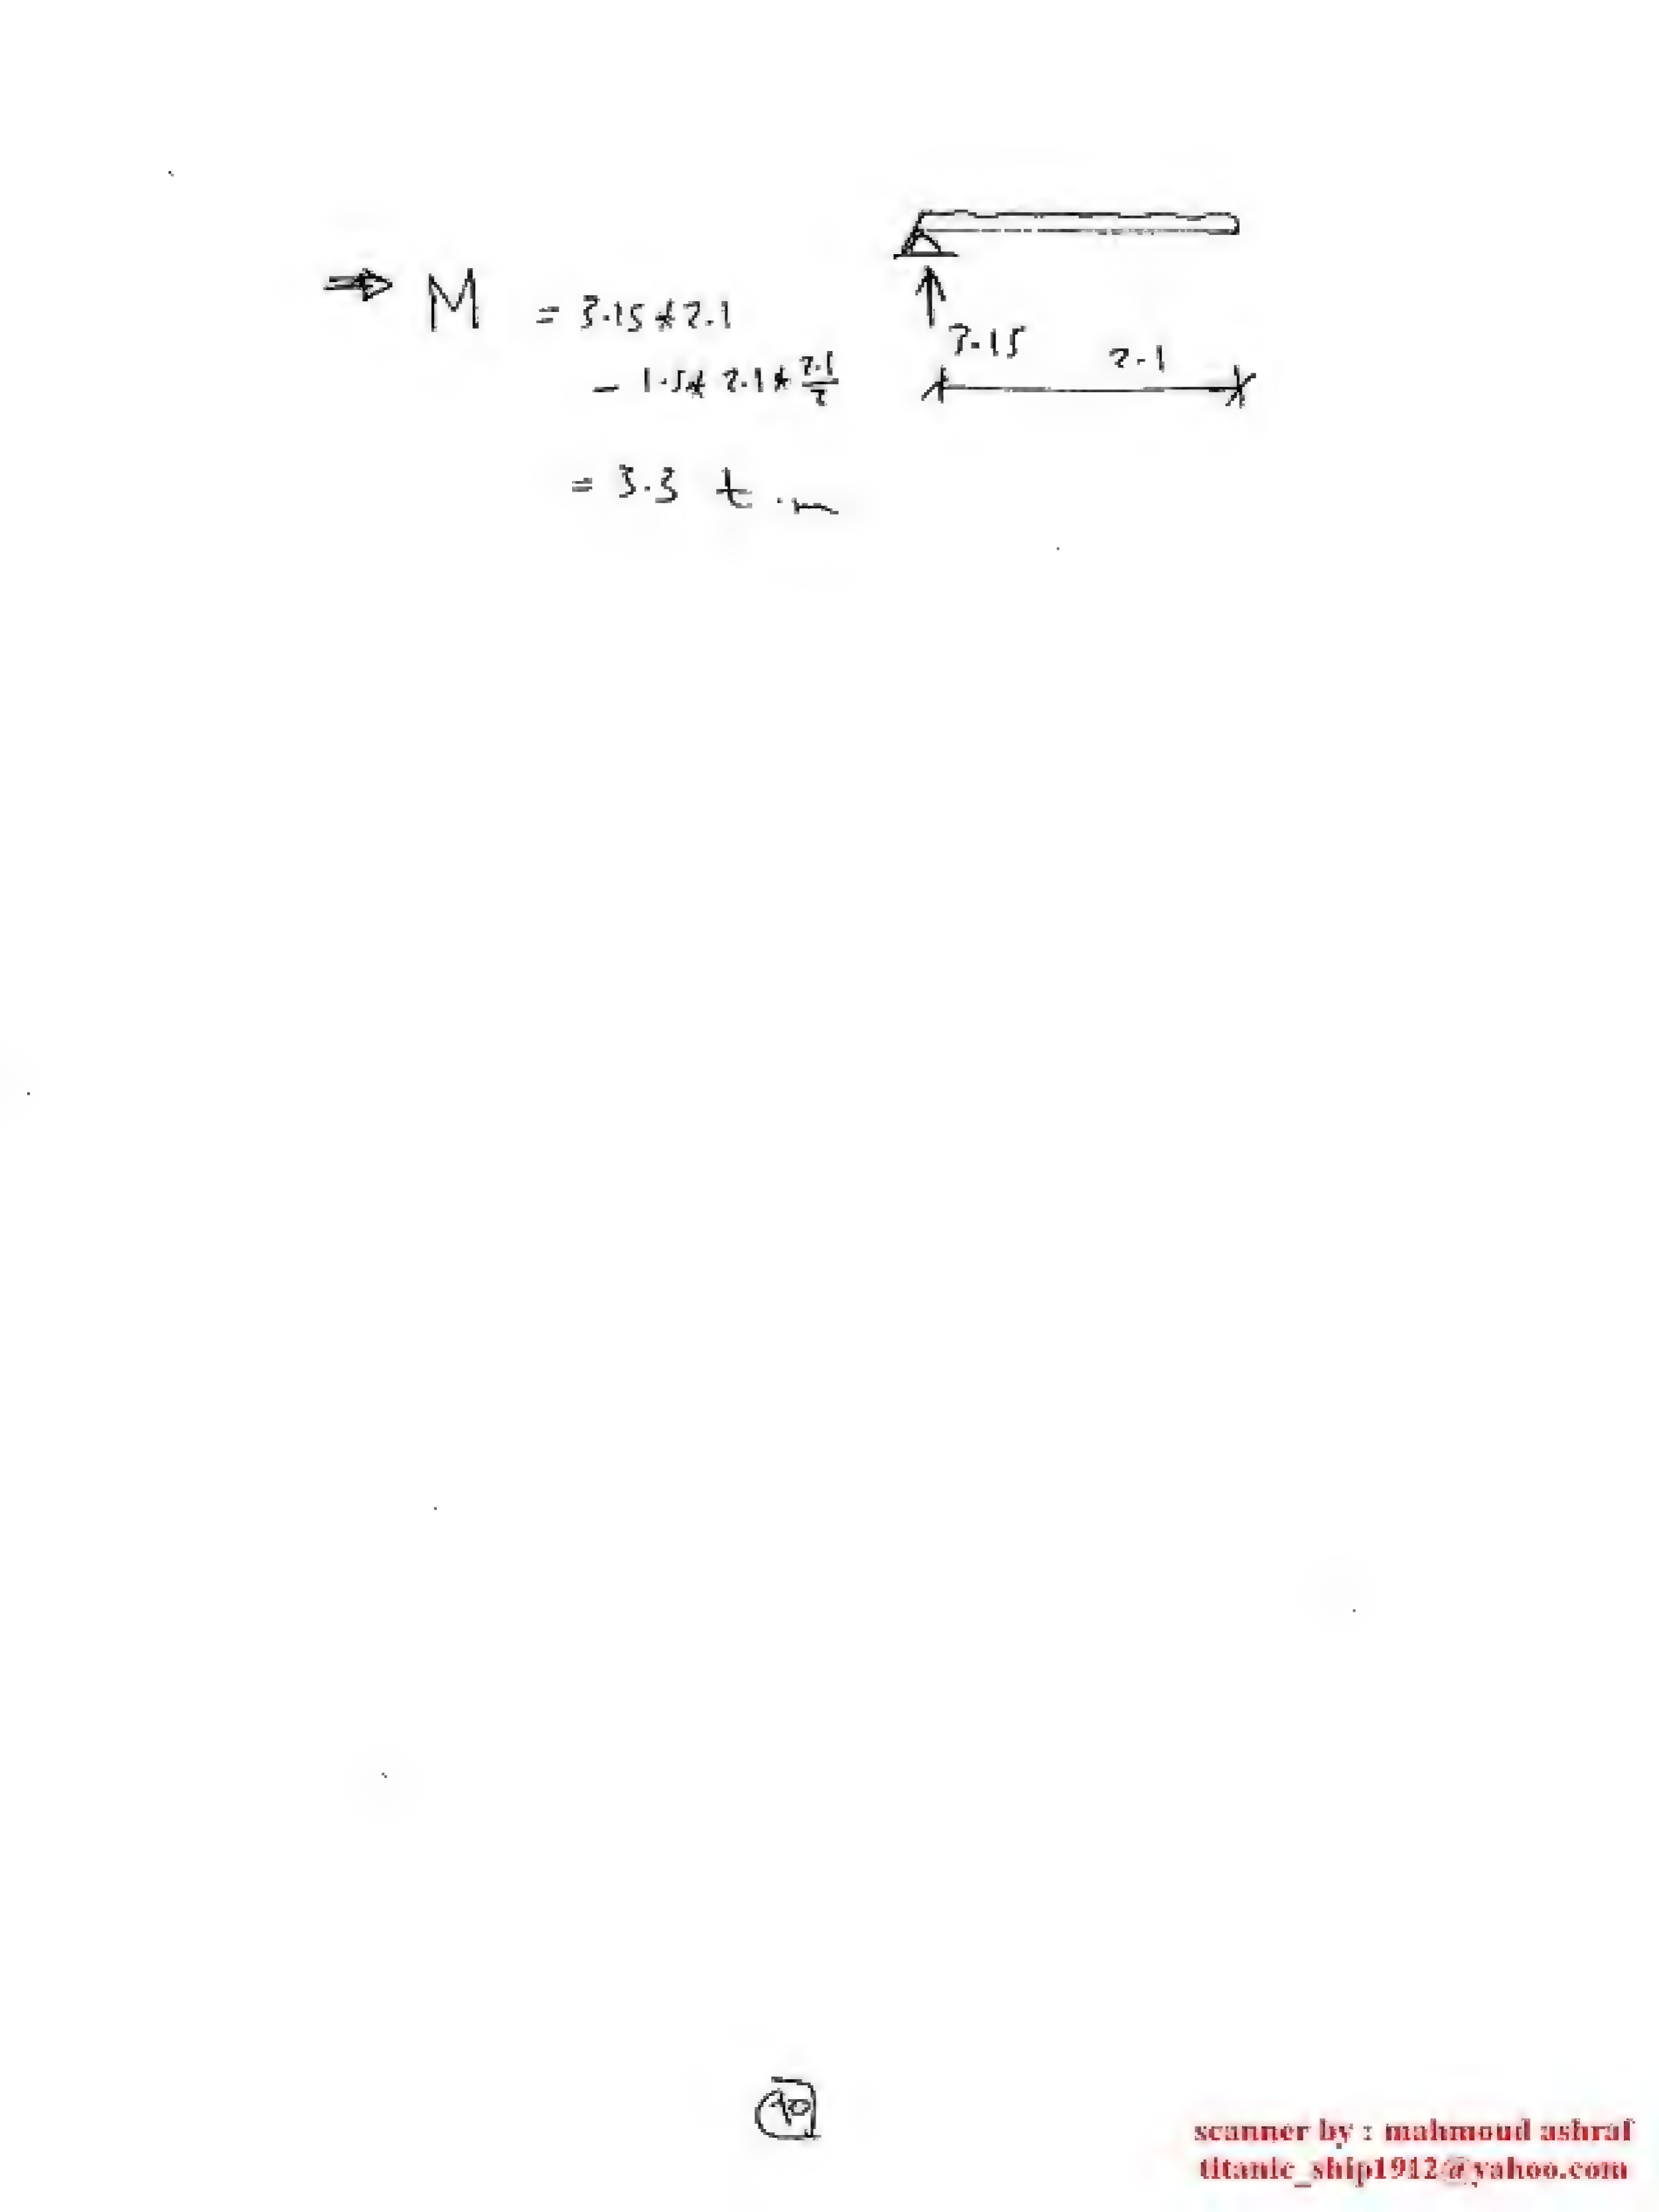 ⇒ M = 3.15 * 2.1
- 1.5 * 2.1 * 2.1/2
= 3.3 t.m
3.15
2.1
scanner by : mahmoud ashraf
titanic_ship1912@yahoo.com